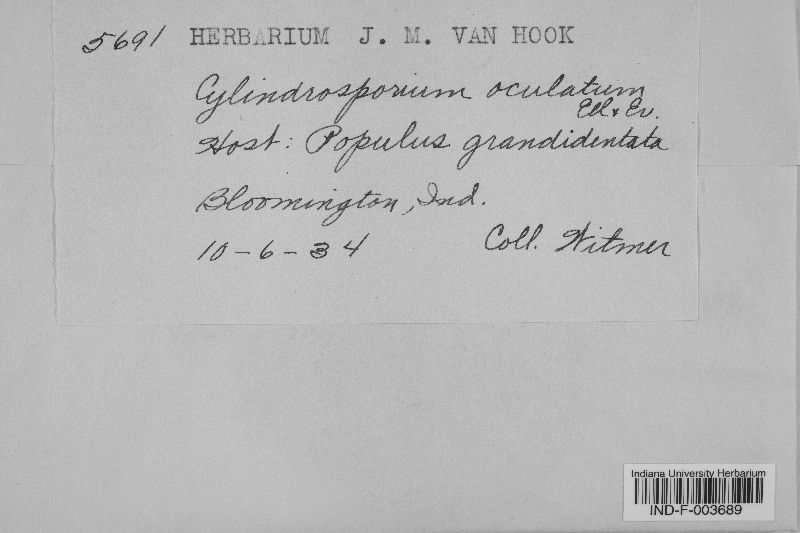 5691 HERBARIUM J. M. VAN HOOK
Cylindrosporium oculatum
Ell. & Ev.
Host: Populus grandidentata
Bloomington, Ind.
10-6-34 Coll. Witmer
Indiana University Herbarium
IND-F-003689